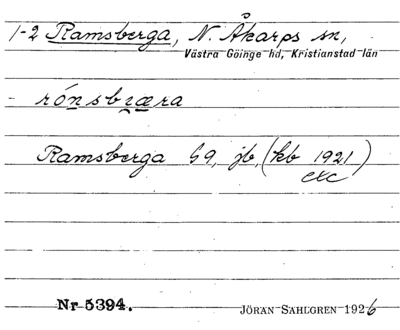 1-2 Ramsberga, N. Åkarps sn,
Västra Göinge hd, Kristianstad län
- rónsbræra
Ramsberga G9, jb, (kb 1921)
etc
Nr 5394. JÖRAN SAHLGREN 1926